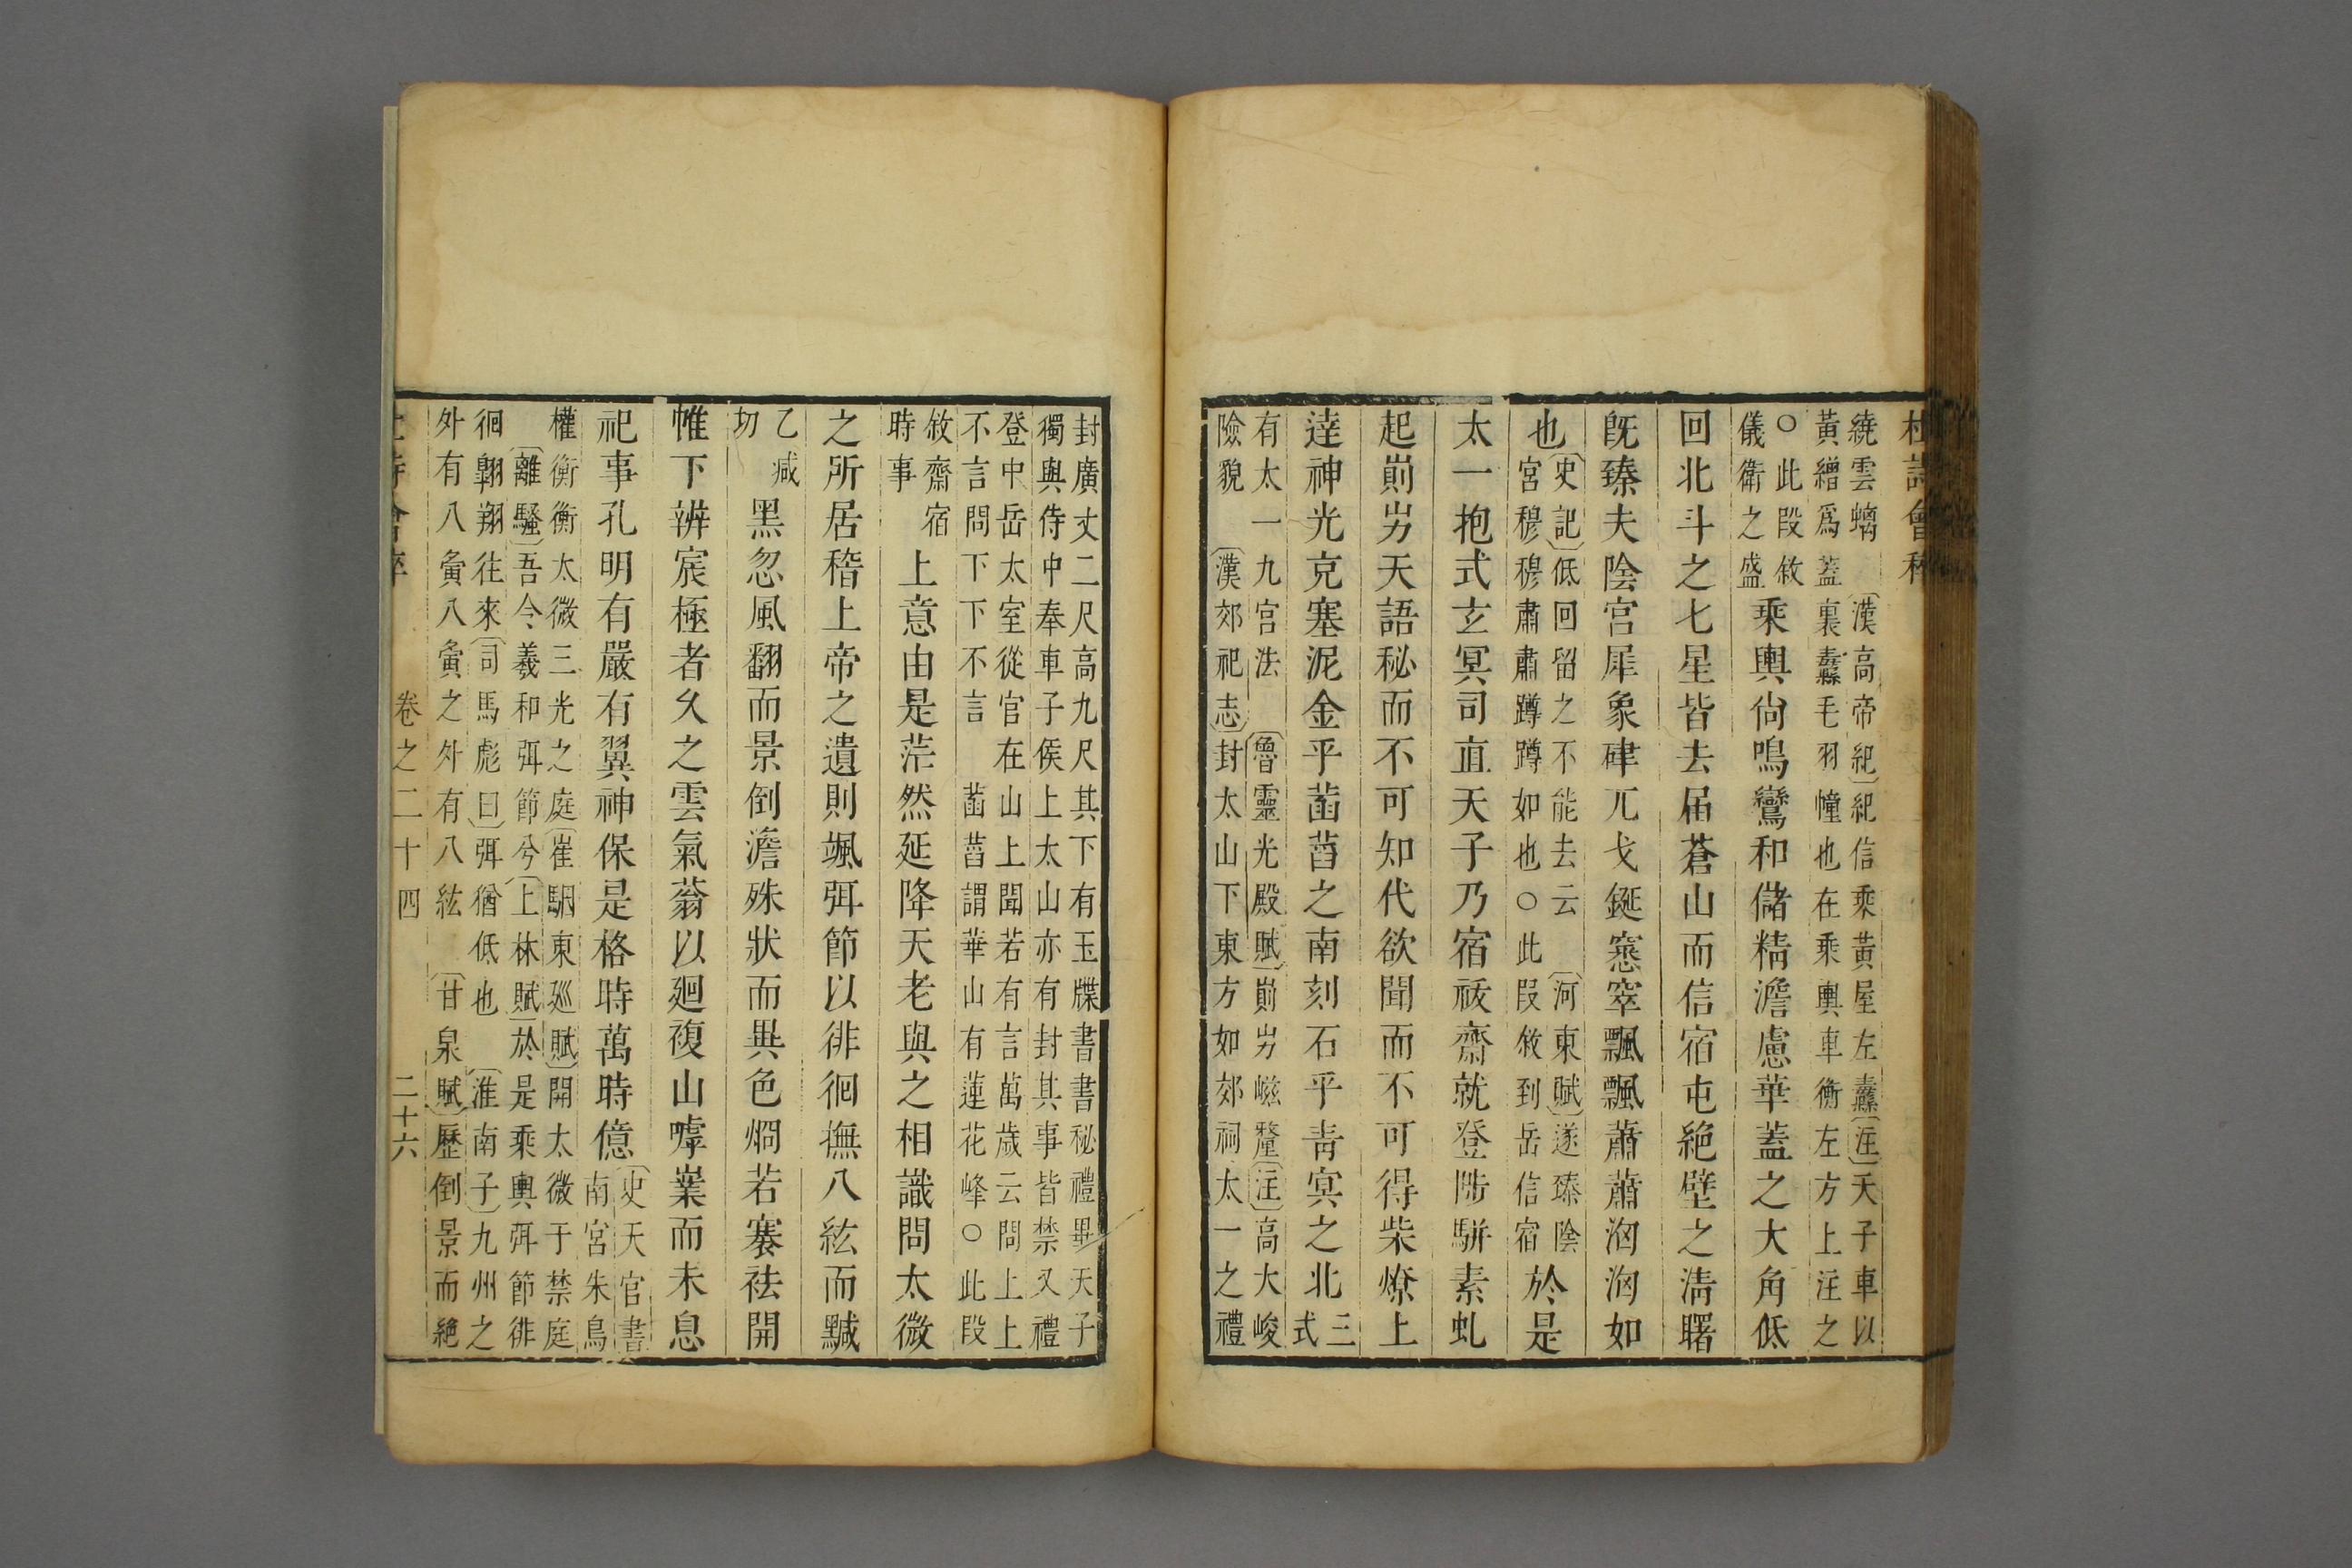 杜詩會稡
繞雲螭　〔漢高帝紀〕紀信乘黃屋左纛〔注〕天子車以
黃繒爲蓋裏纛毛羽幢也在乘輿車衡左方上注之
○此段敘
儀衛之盛
乘輿尙鳴鸞和儲精澹慮華蓋之大角低
回北斗之七星皆去届蒼山而信宿屯絶壁之淸曙
旣臻夫陰宮犀象硉兀戈鋋窸窣飄飄蕭蕭洶洶如
也
〔史記〕低回留之不能去云　〔河東賦〕遂臻陰
宮穆穆肅肅蹲蹲如也○此段敘到岳信宿
於是
太一抱式玄冥司直天子乃宿祓齋就登陟駢素虬
起崱屴天語秘而不可知代欲聞而不可得柴燎上
達神光充塞泥金乎菡萏之南刻石乎靑冥之北
三
式
有太一九宮法　〔魯靈光殿賦〕崱屴嵫釐〔注〕高大峻
險貌　〔漢郊祀志〕封太山下東方如郊祠太一之禮
封廣丈二尺高九尺其下有玉牒書書秘禮畢天子
獨與侍中奉車子侯上太山亦有封其事皆禁又禮
登中岳太室從官在山上聞若有言萬歲云問上上
不言問下下不言　菡萏謂華山有蓮花峰○此段
敘齋宿
時事
上意由是茫然延降天老與之相識問太微
之所居稽上帝之遺則颯弭節以徘徊撫八紘而黬
乙减
切
黑忽風翻而景倒澹殊狀而異色焖若褰祛開
帷下辨宸極者久之雲氣蓊以廻複山嘑業而未息
祀事孔明有嚴有翼神保是格時萬時億
〔史天官書〕
南宮朱鳥
權衡衡太微三光之庭〔崔駰東廵賦〕開太微于禁庭
〔離騷〕吾令羲和弭節兮〔上林賦〕於是乘輿弭節徘
徊翺翔往來〔司馬彪曰〕弭猶低也　〔淮南子〕九州之
外有八夤八夤之外有八紘　〔甘泉賦〕歷倒景而絶
卷之二十四　二十六